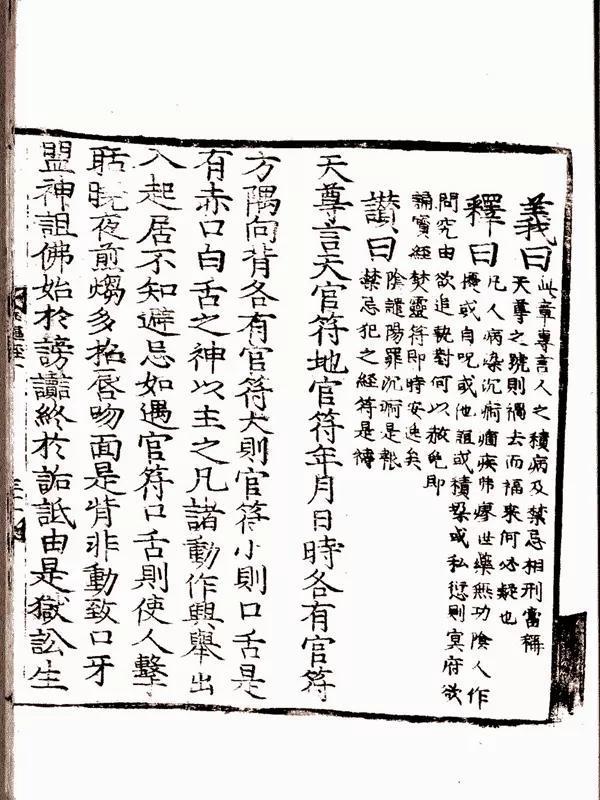 義曰此章專言人之積病及禁忌相刑當稱
天尊之號則禍去而福來何必疑也
釋曰凡人病染沉痾痼疾弗瘳世藥無功陰人作
擾或自呪或他詛或積染或私愆則冥府欲
問究由欲追執對何以赦免即
誦寶經焚靈符即時安迨矣
讃曰陰譴陽罪沉痾是報
禁忌犯之經符是禱
天尊言天官符地官符年月日時各有官符
方隅向背各有官符大則官符小則口舌是
有赤口白舌之神以主之凡諸動作興舉出
入起居不知避忌如遇官符口舌則使人擊
聒曉夜煎㷟多招唇吻面是背非動致口牙
盟神詛佛始於謗讟終於詬詆由是獄訟生